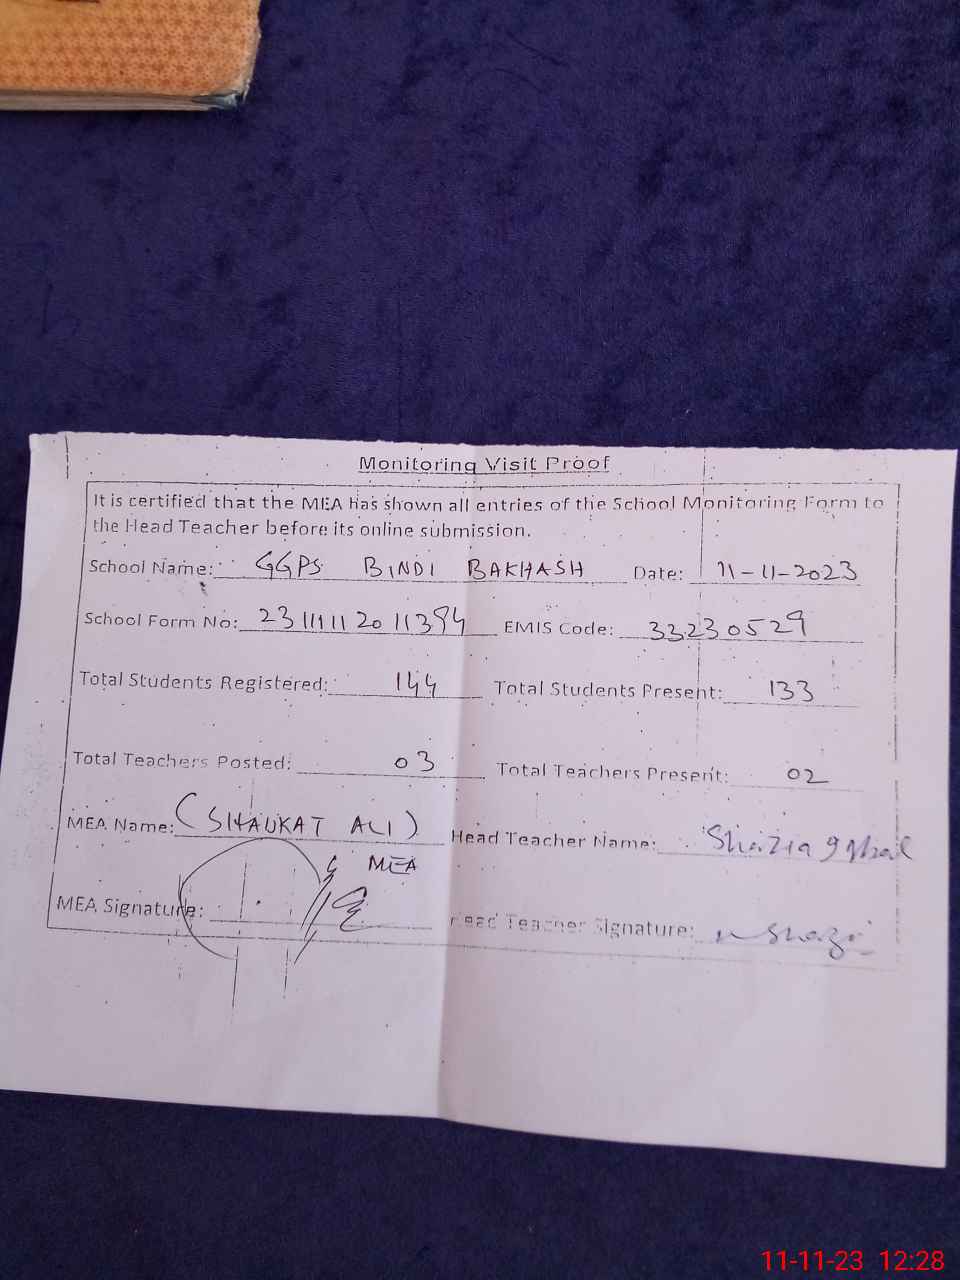 Monitoring Visit Proof
It is certified that the MEA has shown all entries of the School Monitoring Form to
the Head Teacher before its online submission.
School Name: GGPS BINDI BAKHASH Date: 11-11-2023
School Form No: EMIS Code: 33230529
Total Students Registered: 144 Total Students Present: 133
Total Teachers Posted: 03 Total Teachers Present: 02
MEA Name: (SHAUKAT ALI) Head Teacher Name: Shazia
MEA
MEA Signature: Head Teacher Signature:
11-11-23 12:28